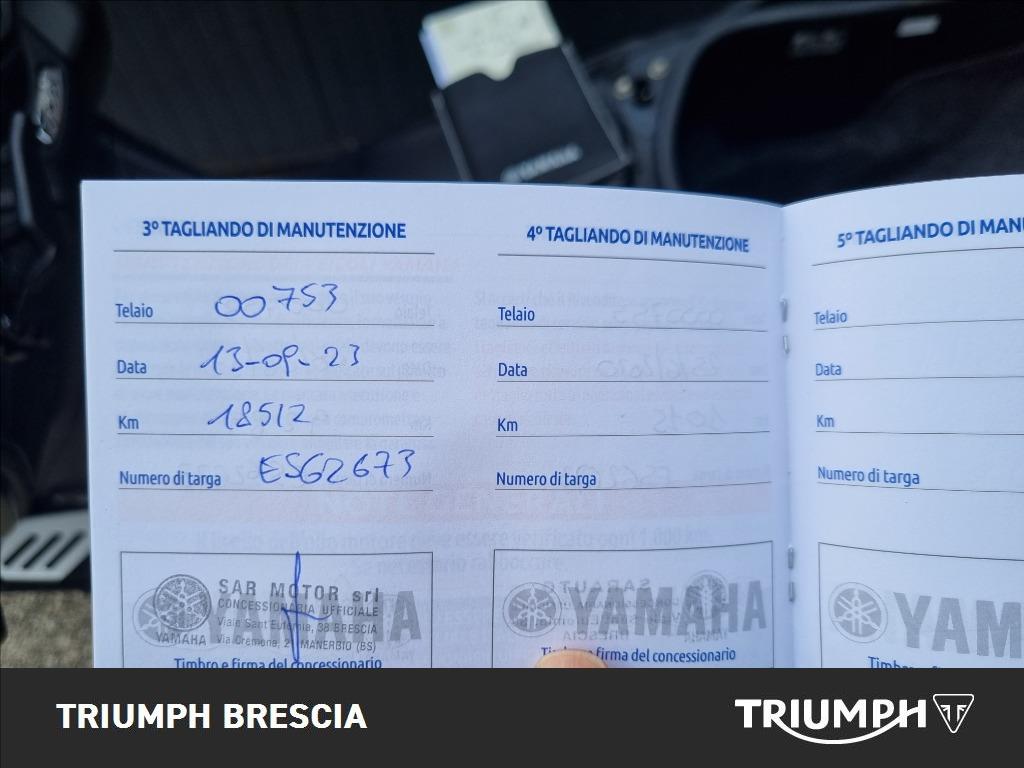 YAMAHA
3º TAGLIANDO DI MANUTENZIONE
Telaio 00753
Data 13-09-23
Km 18512
Numero di targa ES62673
SAR MOTOR srl
CONCESSIONARIA UFFICIALE
Viale Sant'Eufemia, 38 BRESCIA
Via Cremona, 2 MANERBIO (BS)
YAMAHA
Timbro e firma del concessionario
4º TAGLIANDO DI MANUTENZIONE
Telaio
Data
Km
Numero di targa
YAMAHA
firma del concessionario
5º TAGLIANDO DI MAN
Telaio
Data
Km
Numero di targa
YAM
TRIUMPH BRESCIA
TRIUMPH